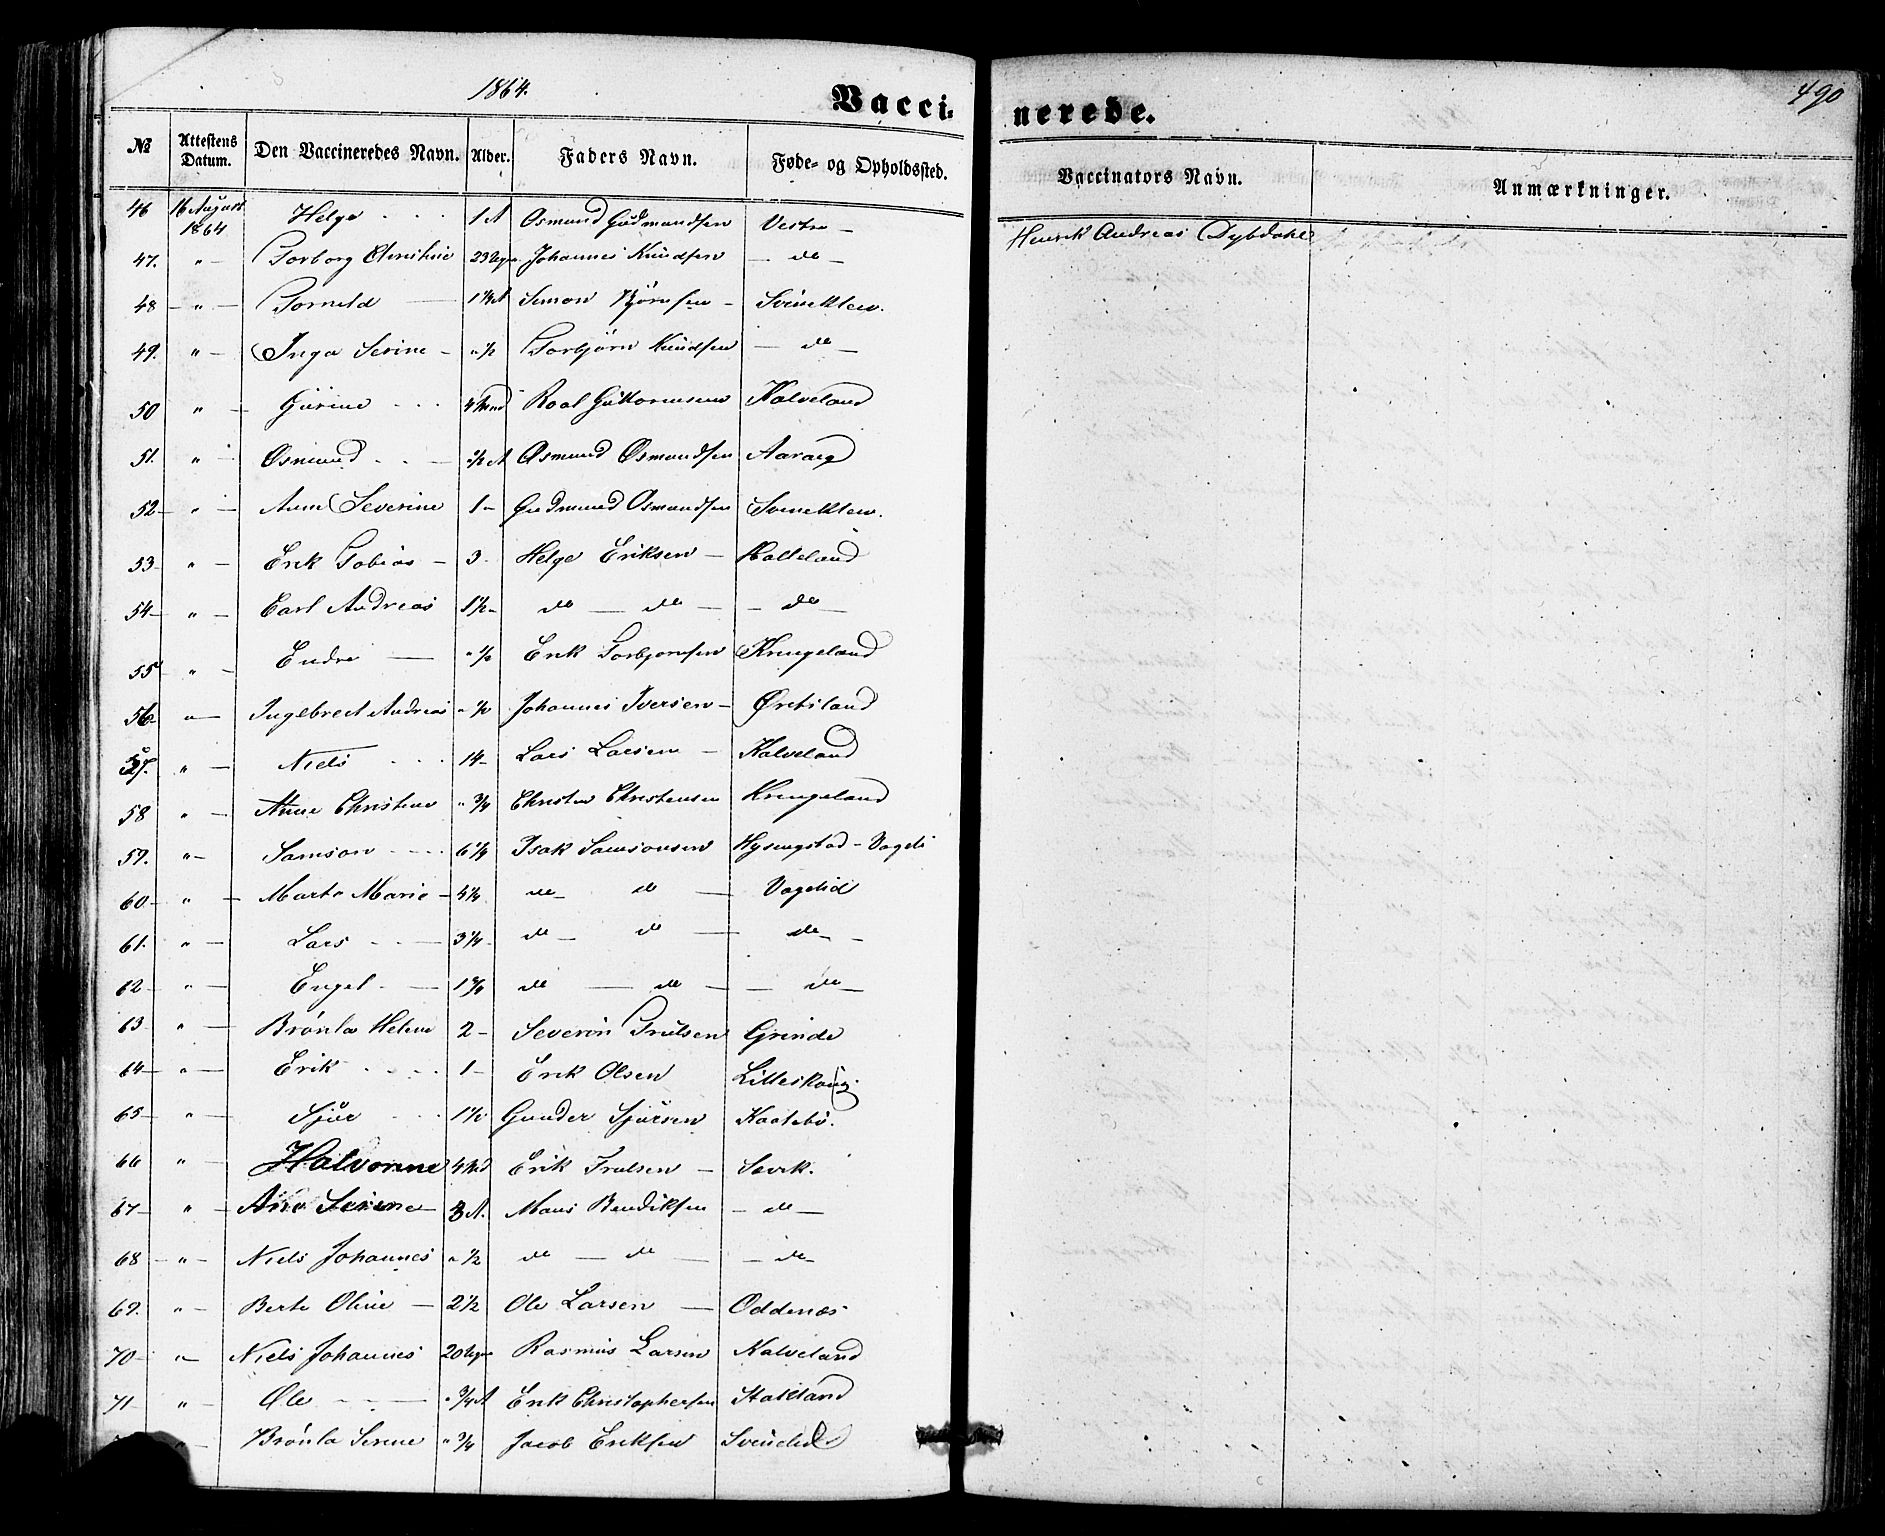 1864.
490
Vacci-
nerede.
№ Attestens Datum. Den Vaccineredes Navn. Alder. Faders Navn. Føde- og Opholdssted. Vaccinators Navn. Anmærkninger.
46 16 August 1864 Helge 1 A Osmund Gudmundsen Vestre Henrik Andreas Dybdahl
47. " Torborg Christine Johannes Knudsen — do —
48 " Simon Bjørnsen
49. " Inga Serine " ½ Torbjörn Knudsen — do —
50 " Gurine 4 Mnd Roal Guttormsen Kalveland
51. " Osmund Asmund Osmundsen
52 " Severine 1 — Gudmund Osmundsen
53 " Erik Tobias — 3 Helge Eriksen — Halleland
54 " Carl Andreas 1½ do — do — — do —
55 " Endre " ½ Erik Torbjornsen Krngeland
56 " Ingebrect Andreas " ½ Johannes Iversen
57. " Niels 14 — Lars Larsen — Kalveland
58 " Anne Christine " ¾ Christen Christensen
59. " Samson 6¼ Isak Samsonsen
60 " Marta Marie — 4¼ do do — Vagelid
61. " Lars 3¼ do — do — do —
62 " Engel do — do — — do —
63 " Brônla Helene 2 — Severin Trulsen Grinde
64 " Erik 1 — Erik Olsen Lilleskoug.
65 " Sjur 1½ Gunder Sjursen
66 " Halvorine 4 Md Erik Trulsen — Sævik.
67 " Ane Serine 3 A. Mons Bendiksen — do —
68 " Niels Johannes " ½ do — do — — do
69. " Berte Oline — 2½ Ole Larsen — Oddenæs
70 " Niels Johannes Rasmus Larsen Kalveland
71 " Ole " ¾ A Erik Christophersen
" Brônla Serine " ¾ Jacob Eriksen